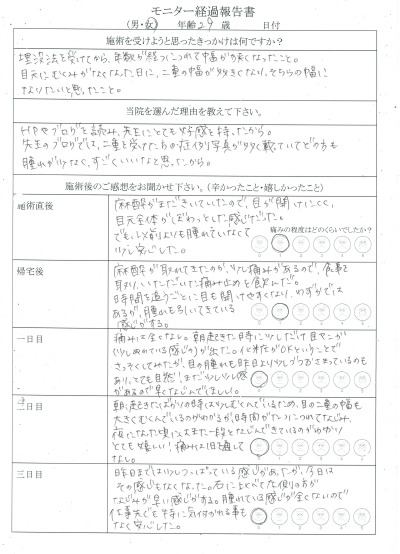 モニター経過報告書
(男・女) 年齢 29 歳 日付
施術を受けようと思ったきっかけは何ですか？
埋没法を受けてから、年数が経つにつれて幅が狭くなったこと。
目元にむくみがなくなった日に、二重の幅が大きくなり、そちらの幅に
なりたいと思ったこと。
当院を選んだ理由を教えて下さい。
HPやブログを読み、先生にとても好感を持ったから。
先生のブログでは、二重を受けた方の症例写真が多く載っていてどの方も
腫れが少なく、すごくいいなと思ったから。
施術後のご感想をお聞かせ下さい。(辛かったこと・嬉しかったこと)
施術直後
麻酔がまだきいていたので、目が開けにくく、
目元全体がぼわっとした感じだった。
でも、思ったよりも腫れていなくて
少し安心した。
痛みの程度はどのくらいでしたか？
0 1 2 3 4 5
帰宅後
麻酔が取れてきたのか、少し痛みがあるので、食事を
取り、いただいた痛み止めを飲んだ。
時間を追うごとに目も開けやすくなり、わずかでは
あるが、腫れも引いてきている
感じがする。
0 1 2 3 4 5
一日目
痛みは全くない。朝起きた時に少しだけ目ヤニが
(少しぬれている感じの)が出た。化粧がOKということで
さっそくしてみたが、目の腫れも昨日より少しづつおさまっているのも
あり、とても自然！まだ少し感じ
があるので早くなくしてほしい。
0 1 2 3 4 5
二日目
朝、起きたばかりの時は少しむくんでいるため、目の二重の幅も
大きくむくんでいるのがわかるが、時間がたつにつれてなじみ、
夜になった頃にはまた一段となじんできているのがわかり
とても嬉しい！痛みは引き続き
なし。
0 1 2 3 4 5
三日目
昨日までは少しつっぱっている感じがあったが、今日は
その感じもなくなった。右にくらべて左側の方が
なじみが早い感じがする。腫れている感じが全くないので
仕事先でも特に気付かれる事も
なく安心した。
0 1 2 3 4 5